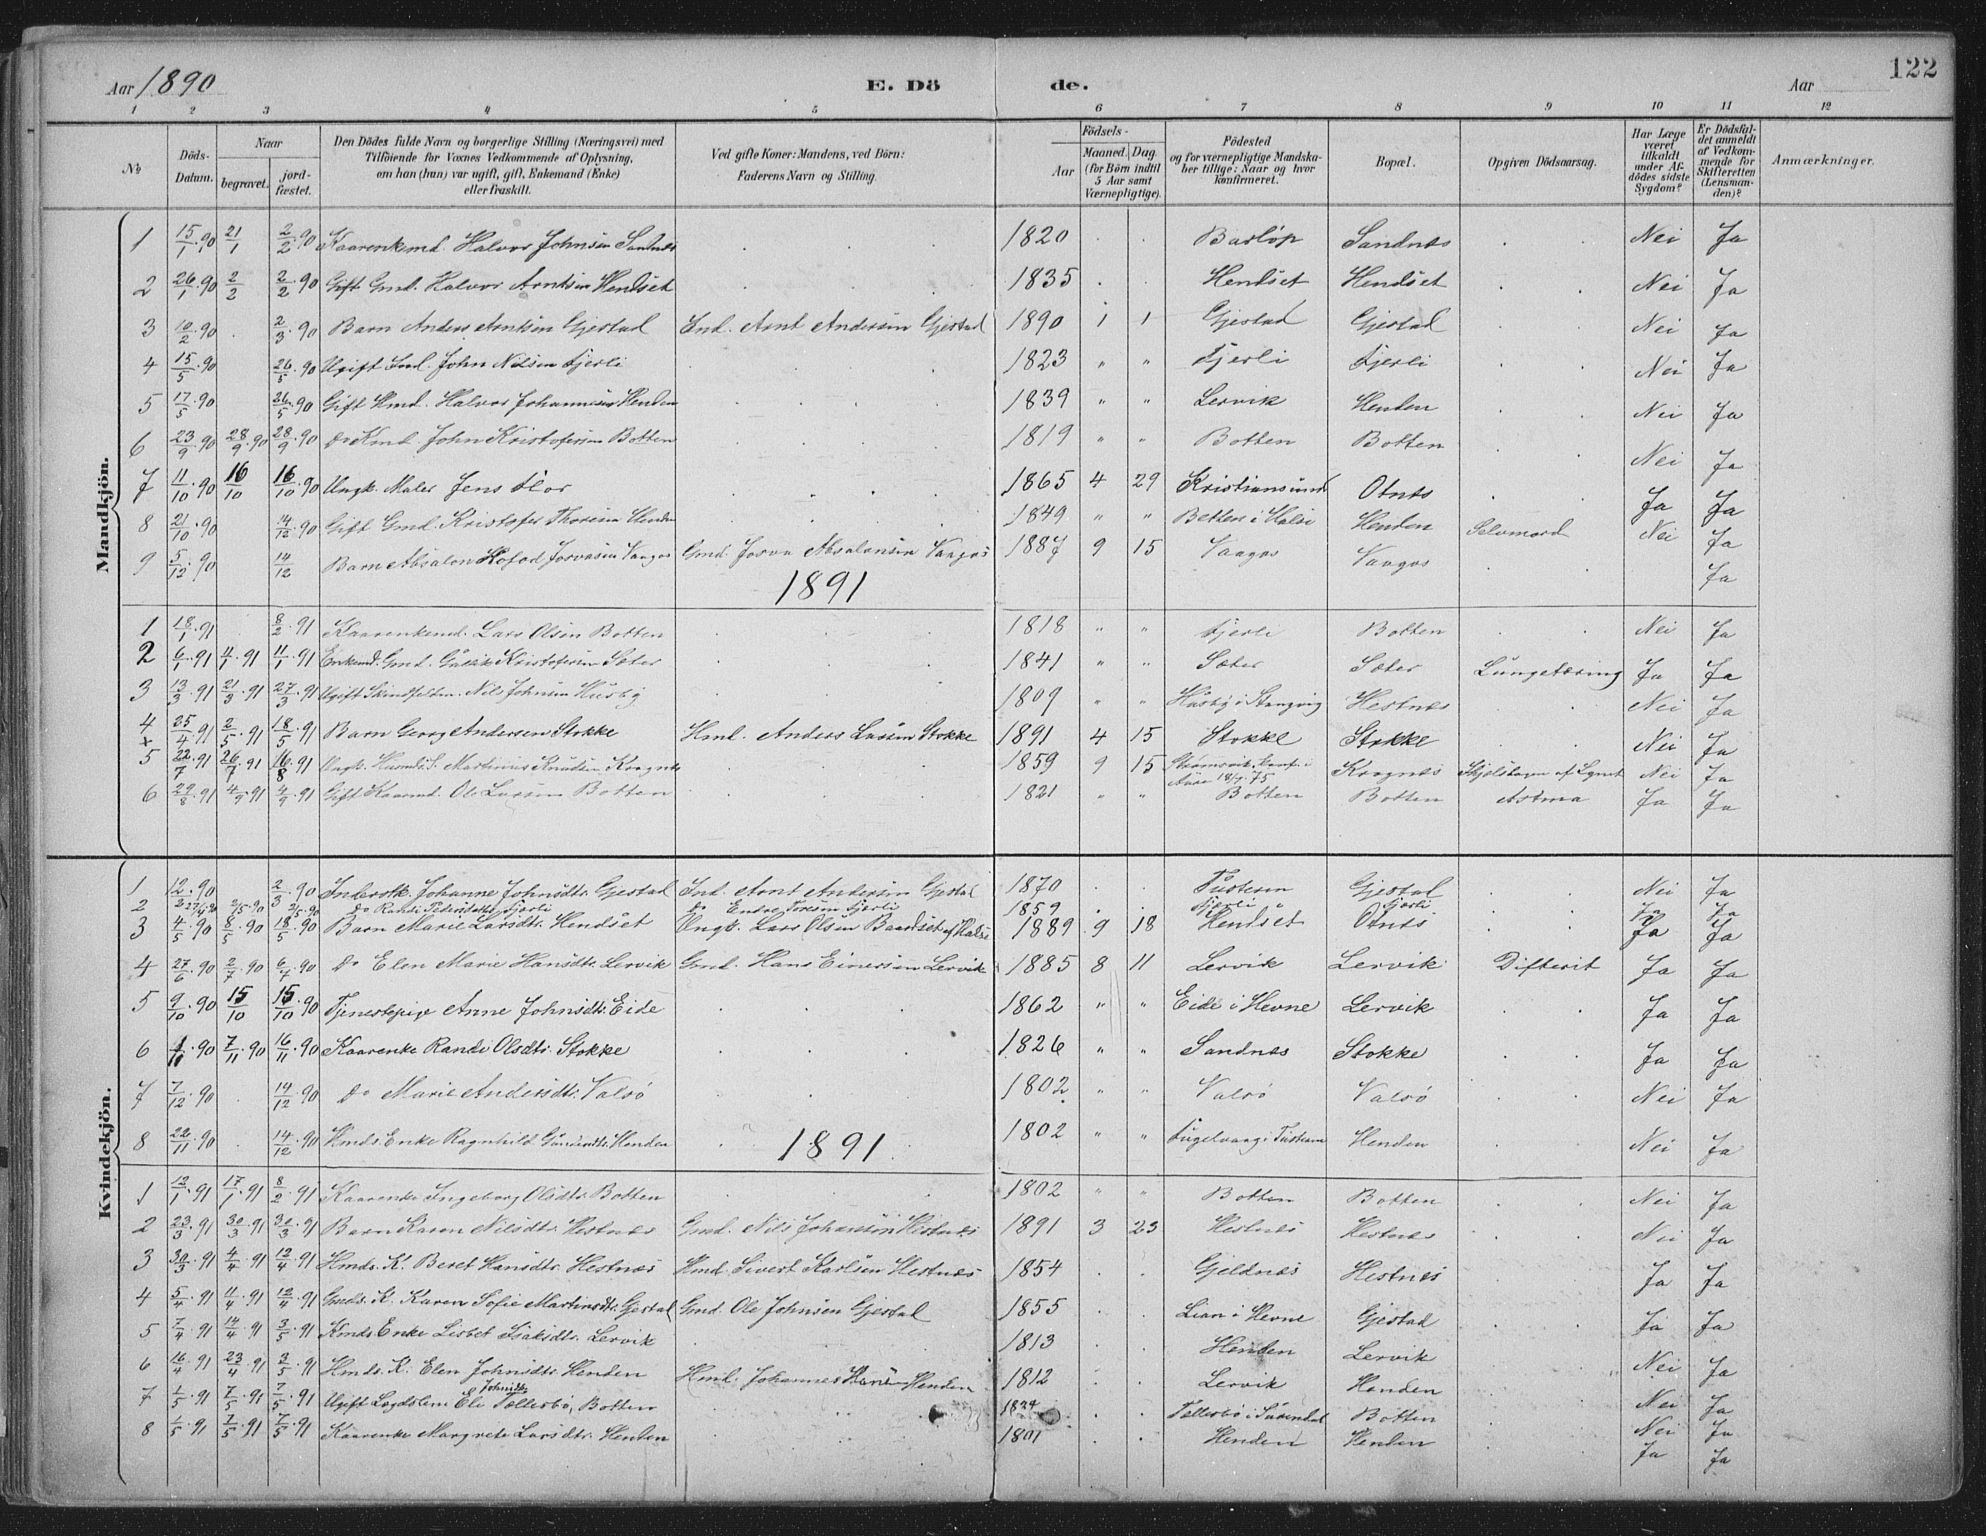 Aar 1890 E. Dö de. Aar 122
1 2 3 4 5 6 7 8 9 10 11 12
№ Döds-Datum. Naar begravet. jord-fæstet. Den Dödes fulde Navn og borgerlige Stilling (Næringsvei) med Tilföiende for Voxnes Vedkommende af Oplysning, om han (hun) var ugift, gift, Enkemand (Enke) eller fraskilt. Ved gifte Koner: Mandens, ved Börn: Faderens Navn og Stilling. Födsels- Aar Maaned. Dag. (for Börn indtil 5 Aar samt Værnepligtige). Födested og for værnepligtige Mandska-ber tillige: Naar og hvor konfirmeret. Bopæl. Opgiven Dödsaarsag. Har Læge været tilkaldt under Af-dödes sidste Sygdom? Er Dödsfal-det anmeldt af Vedkom-mende for Skifteretten (Lensman-den)? Anmærkninger.
Mandkjön.
1 15/1 90 21/1 2/2 90 Kaarenkemd Halvor Johnsen Sandnes 1820 Sandnes Nei Ja
2 26/1 90 2/2 2/2 90 Gift Gmd. Halvor Arntsen Hendset 1835 Hendset Hendset Nei Ja
3 10/2 90 2/3 90 Barn Anders Arntsen Gjestad Ind. Arnt Andersen Gjestad 1890 1 1 Gjestad Gjestad Nei Ja
4 15/5 90 26/5 90 Ugift Ind. John Nilsen Fjerli 1823 " " Fjerli Fjerli Nei Ja
5 17/5 90 26/5 90 Gift Hmd. Halvor Johannesen Henden 1839 " " Lervik Henden Nei Ja
6 23/9 90 28/9 90 28/9 90 Do Kmd John Kristofersen Botten 1819 " " Botten Botten Nei Ja
7 11/10 90 16/10 16/10 90 Ungk. Maler Jens Flor 1865 4 29 Kristiansund Otnes Ja Ja
8 21/10 90 14/12 90 Gift Gmd. Kristofer Thoresen Henden 1849 " " Betten i Halse Henden Selvmord Nei Ja
9 5/12 90 14/12 Barn Absalon Hofod Josvasen Vaagos Gmd Josva Absalonsen Vaagos 1887 9 15 Vaagos Vaagos Ja
1891
1 18/1 91 8/2 91 Kaarenkemd. Lars Olsen Botten 1818 " " Fjerli Botten Nei Ja
2 6/1 91 11/1 91 11/1 91 Enkemd. Gmd. Gullik Kristofersen Sæter 1841 " " Sæter Sæter Lungetæring Ja Ja
3 13/3 91 21/3 91 27/3 91 Ugift Nils Johnsen Husby 1809 " " Husby i Stangvig Hestnes Nei Ja
4 25/4 91 2/5 91 18/5 91 Barn Georg Andersen Stokke Hmd. Anders Larsen Stokke 1891 4 15 Stokke Stokke Nei Ja
5 22/7 91 26/7 91 16/8 91 Ungk. Husmds S. Martinus Knudsen Kragnes 1859 9 15 Strømsvik, konf. i Aure 18/7 75 Kragnes Ihjelslagen af Lynet Nei Ja
6 29/8 91 4/9 91 4/9 91 Gift Kaarmd. Ole Larsen Botten 1821 " " Botten Botten Astma Ja Ja
Kvindekjön.
1 12/2 90 2/3 90 Inderstk. Johanne Johnsdtr. Gjestad Ind. Arnt Andersen Gjestad 1870 Tusteren Gjestad Nei Ja
2 27/4 90 2/5 90 2/5 90 Do Randi Pedersdatter Fjerli Do Endre Toresen Fjerli 1859 Fjerli Fjerli Ja Ja
3 4/5 90 8/5 90 18/5 90 Barn Marie Larsdtr. Hendset Ungk. Lars Olsen Baardset af Halse 1889 9 18 Hendset Otnes Ja Ja
4 27/6 90 2/7 90 6/7 90 Do Elen Marie Hansdtr. Lervik Gmd Hans Einersen Lervik 1885 8 11 Lervik Lervik Difterit Ja Ja
5 9/10 90 15/10 15/10 90 Tjenestepige Anne Johnsdtr. Eide 1862 " " Eide i Hevne Lervik Ja Ja
6 1/11 90 7/11 90 16/11 90 Kaarenke Randi Olsdtr. Stokke 1826 " " Sandnes Stokke Ja Ja
7 7/12 90 14/12 90 Do Marie Andersdtr. Valsø 1802 " " Valsø Valsø Nei Ja
8 22/11 90 14/12 90 Kmds. Enke Ragnhild Gundersdtr. Henden 1802 " " Fugelvaag i Tustern Henden Nei Ja
1891
1 12/1 91 17/1 91 8/2 91 Kaarenke Ingeborg Olsdtr. Botten 1802 " " Botten Botten Nei Ja
2 23/3 91 30/3 91 30/3 91 Barn Karen Nilsdtr. Hestnes Gmd. Nils Johansen Hestnes 1891 3 23 Hestnes Hestnes Nei Ja
3 30/3 91 4/4 91 12/4 91 Hmds. K. Beret Hansdtr. Hestnes Hmd Sivert Karlsen Hestnes 1854 Gjeldnes Hestnes Ja Ja
4 5/4 91 11/4 91 12/4 91 Gmds. K. Karen Sofie Martinsdtr. Gjestad Gmd Ole Johnsen Gjestad 1855 Lian i Hevne Gjestad Ja Ja
5 7/4 91 14/4 91 3/5 91 Kmds Enke Lisbet Isaksdtr. Lervik 1813 Henden Lervik Nei Ja
6 16/4 91 23/4 91 3/5 91 Hmds. K. Elen Johnsdtr. Henden Hmd. Johannes Henden 1812 Lervik Henden Nei Ja
7 1/5 91 7/5 91 7/5 91 Ugift Lægdslem Eli Johnsdtr. Tellesbø, Botten 1824 Tellesbø i Surendal Botten Nei Ja
8 1/5 91 7/5 91 7/5 91 Kaarenke Margrete Larsdtr. Henden 1801 Henden Henden Ja Ja